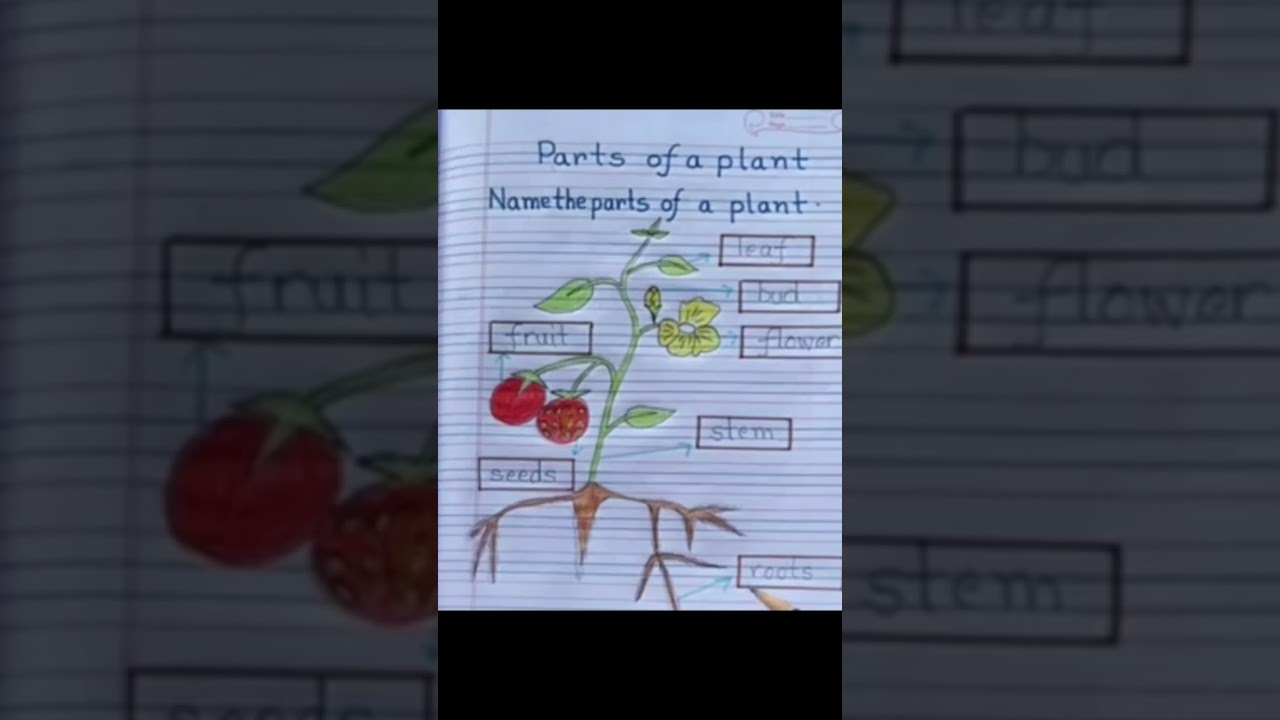 Parts of a plant
Name the parts of a plant.
leaf
bud
fruit
flower
stem
seeds
roots